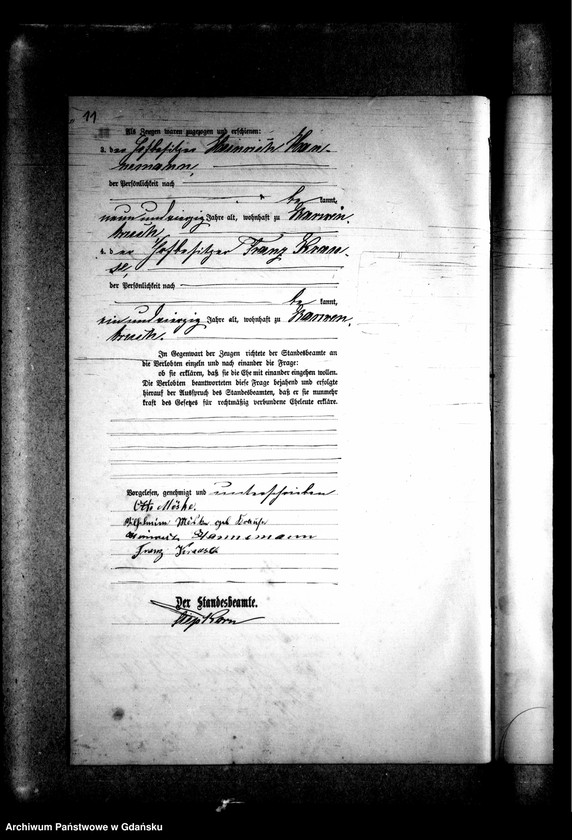 11
Als Zeugen waren zugezogen und erschienen:
3. der Hofbesitzer Heinrich Han-
nemann,
der Persönlichkeit nach
be kannt,
neunundvierzig Jahre alt, wohnhaft zu
bruch.
4. der Hofbesitzer Franz Krau-
se,
der Persönlichkeit nach
be kannt,
einundvierzig Jahre alt, wohnhaft zu
bruch.
In Gegenwart der Zeugen richtete der Standesbeamte an
die Verlobten einzeln und nach einander die Frage:
ob sie erklären, daß sie die Ehe mit einander eingehen wollen.
Die Verlobten beantworteten diese Frage bejahend und erfolgte
hierauf der Ausspruch des Standesbeamten, daß er sie nunmehr
kraft des Gesetzes für rechtmäßig verbundene Eheleute erkläre.
Vorgelesen, genehmigt und unterschrieben
Otto
geb
Heinrich Hannemann
Franz Krause
Der Standesbeamte.
Archiwum Państwowe w Gdańsku